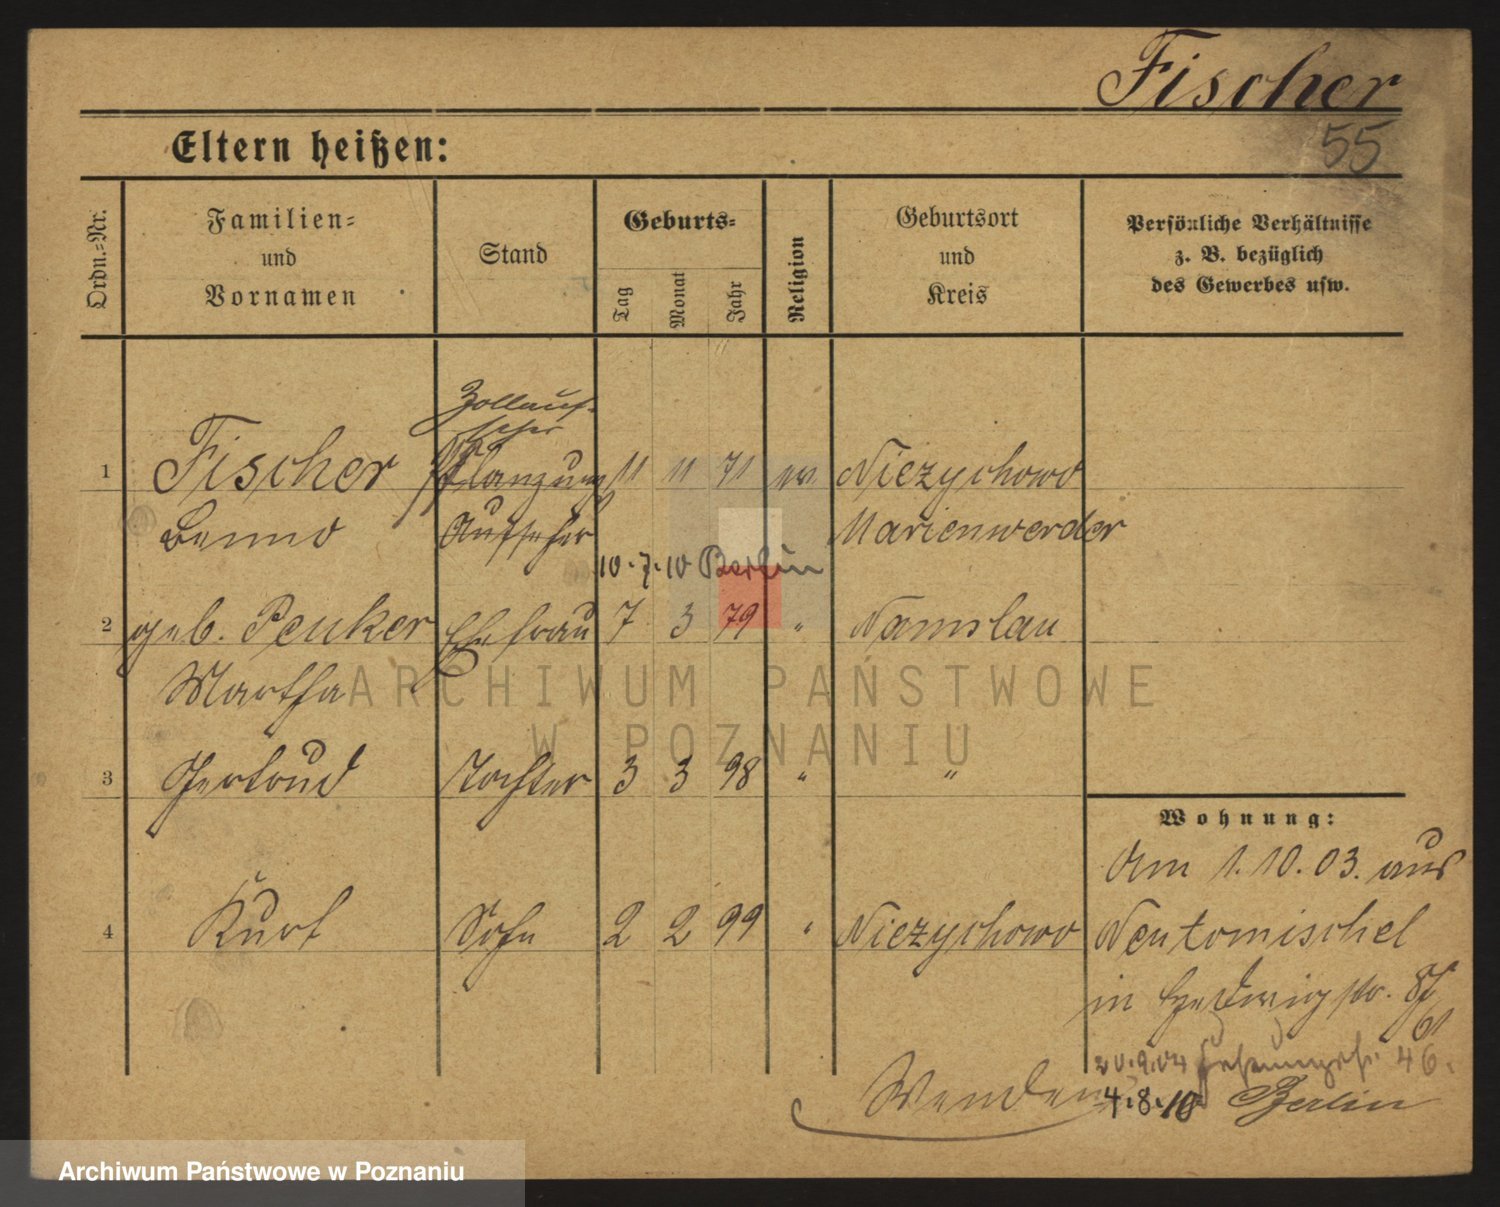 Fischer
55
Eltern heißen:
Ordn.-Nr.
Familien-
und
Vornamen
Stand
Geburts-
Tag
Monat
Jahr
Religion
Geburtsort
und
Kreis
Persönliche Verhältnisse
z. B. bezüglich
des Gewerbes usw.
Zollauf-
seher
1 Fischer Pflanzung 11 11 71 ev. Niezychowo
Benno Aufseher Marienwerder
10.7.10 Berlin
2 geb. Peuker Ehefrau 7 3 79 " Namslau
Martha
3 Gertrud Tochter 3 3 98 " "
Wohnung:
Am 1.10.03. aus
4 Kurt Sohn 2 2 99 " Niezychowo Neutomischel
in Hedwigstr.
20.9.04 46.
Wenden 4.8.10 Berlin
ARCHIWUM PAŃSTWOWE
W POZNANIU
Archiwum Państwowe w Poznaniu